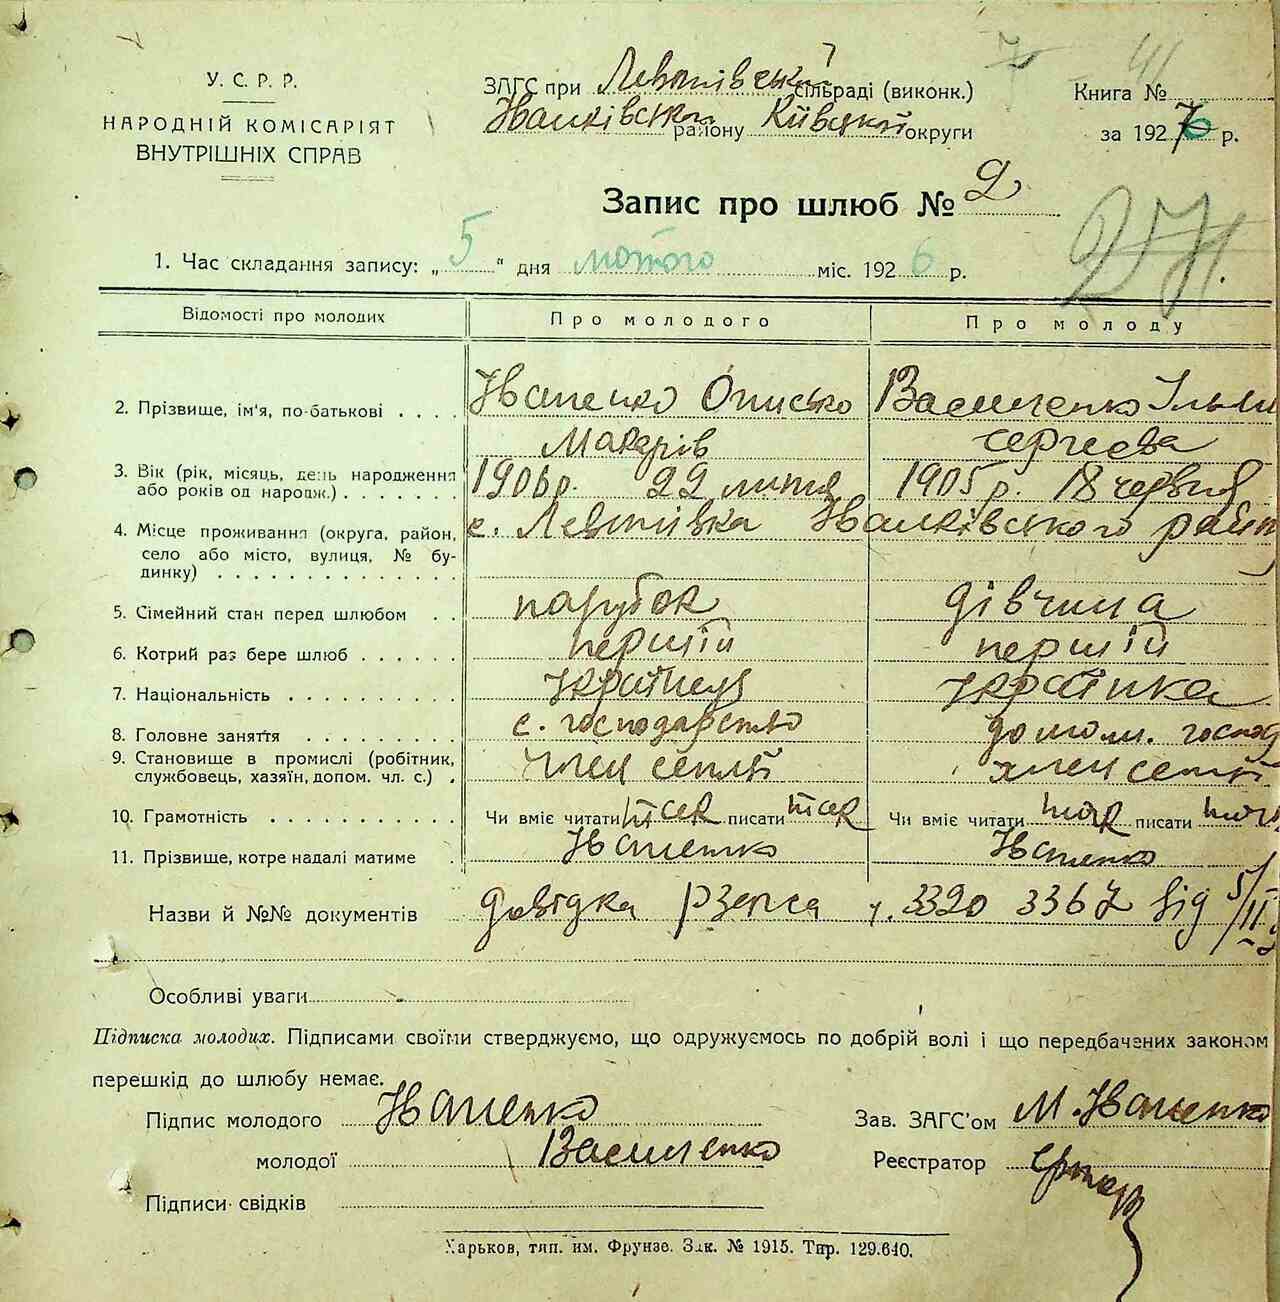 У. С. Р. Р.
НАРОДНІЙ КОМІСАРІЯТ
ВНУТРІШНІХ СПРАВ
ЗАГС при сільраді (виконк.)
Іванківського району Київської округи
Книга № 41
за 1926 р.
Запис про шлюб № 2
271.
1. Час складання запису: „5“ дня лютого міс. 1926 р.
Відомості про молодих Про молодого Про молоду
2. Прізвище, ім'я, по-батькові . . . . Іваненко Описько Василенко
Макарів Сергеєва
3. Вік (рік, місяць, день народження 1906 р. 22 липня 1905 р. 18 червня
або років од народж.) . . . . . . .
4. Місце проживання (округа, район, с. Іванківського району
село або місто, вулиця, № бу-
динку) . . . . . . . . . . . . . .
5. Сімейний стан перед шлюбом . . парубок дівчина
6. Котрий раз бере шлюб . . . . . . перший перший
7. Національність . . . . . . . . . українець українка
8. Головне заняття . . . . . . . . . с. господарство домашн. господ
9. Становище в промислі (робітник, член семьї член семьї
службовець, хазяїн, допом. чл. с.) .
10. Грамотність . . . . . . . . . . . Чи вміє читати писати Чи вміє читати писати
11. Прізвище, котре надалі матиме . Іваненко Іваненко
Назви й №№ документів довідка ч. 3320 3367 від 5/II
Особливі уваги
Підписка молодих. Підписами своїми стверджуємо, що одружуємось по добрій волі і що передбачених законом
перешкід до шлюбу немає.
Підпис молодого Іваненко Зав. ЗАГС'ом М. Іваненко
молодої Василенко Реєстратор
Підписи свідків
Харьков, тип. им. Фрунзе. Зак. № 1915. Тир. 129.640.